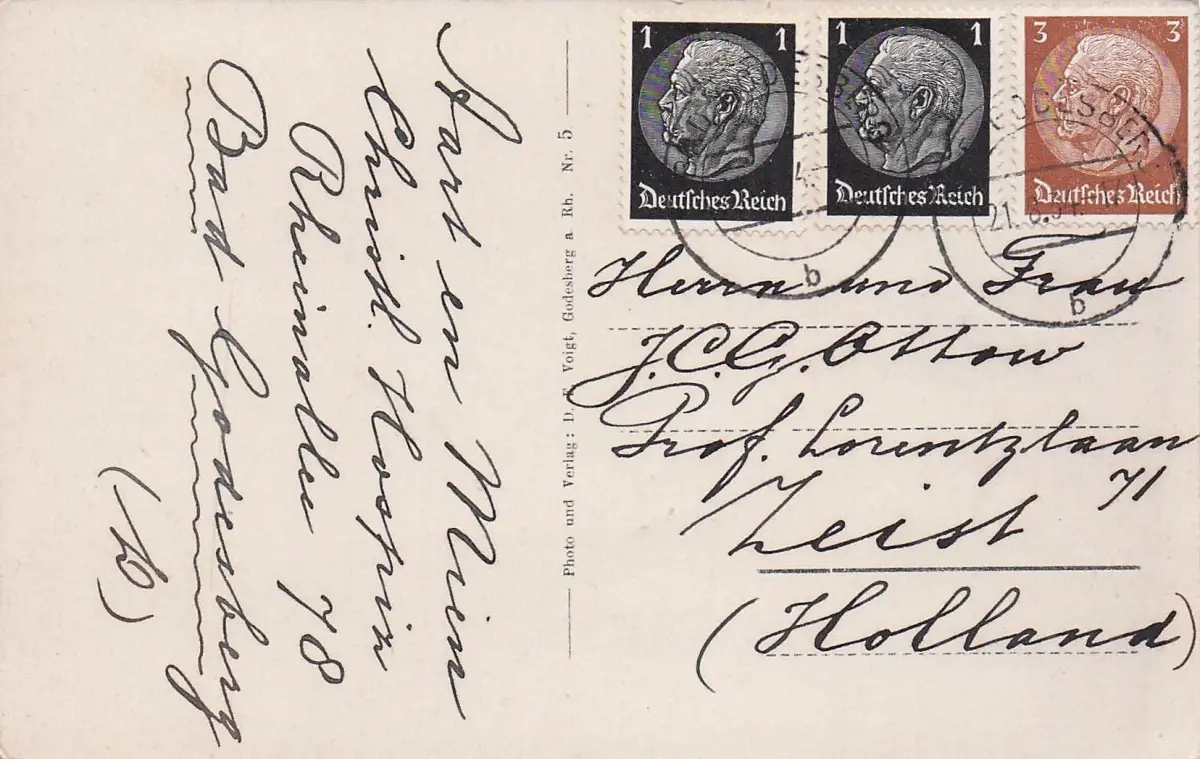 Aart en Mien
Christl. Hospiz
Rheinallee 78
Bad Godesberg
(b)
Photo und Verlag: D. Voigt, Godesberg a Rh. Nr. 5.
1 1
Deutsches Reich
1 1
Deutsches Reich
3 3
Deutsches Reich
b
GODESBERG
21. 8.34.
b
Herrn und Frau
J.C.G. Ottow
Prof. Lorentzlaan
71
Zeist
(Holland)